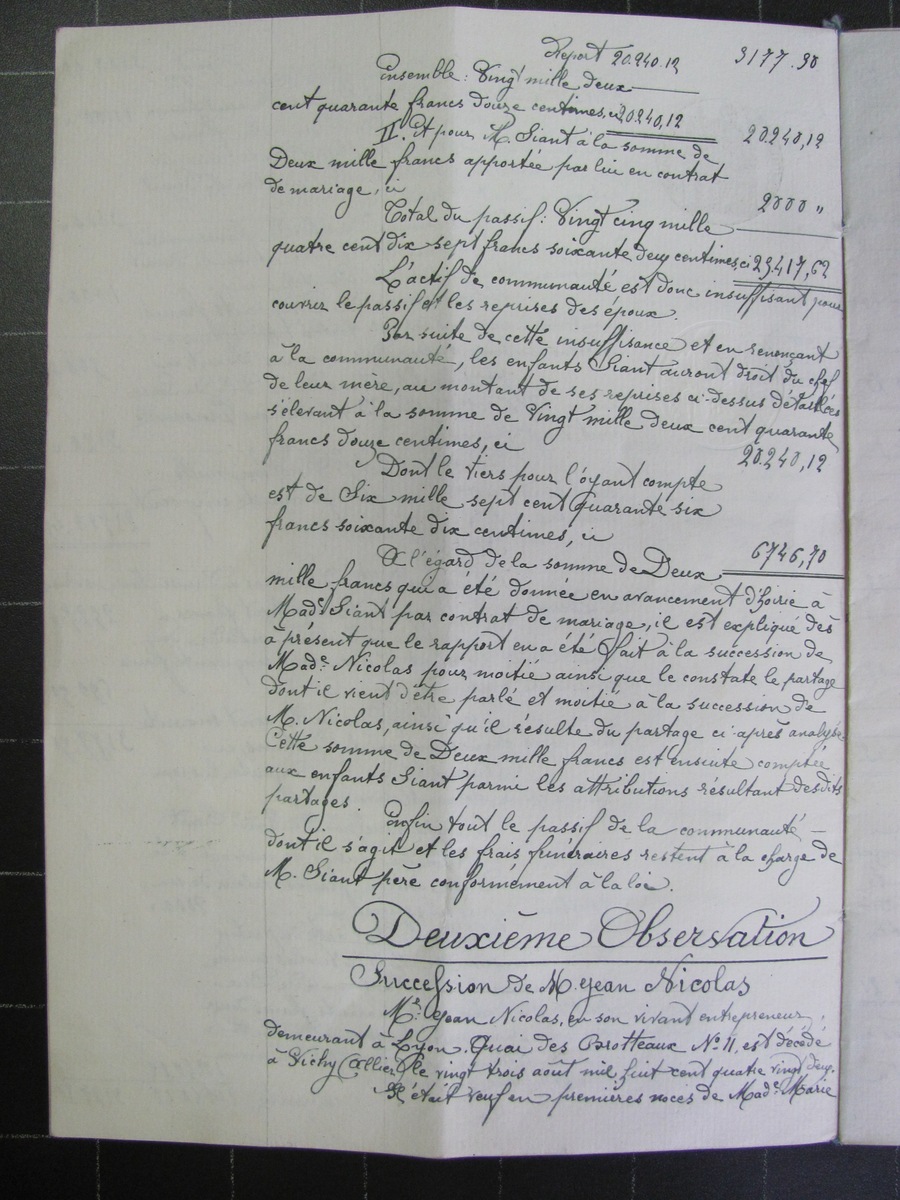 Report 20.240.12 3177.50
Ensemble : Vingt mille deux
cent quarante francs douze centimes, ci 20.240,12 20.240,12
II. Et pour M. Siant à la somme de
Deux mille francs apportée par lui en contrat
de mariage, ci 2000 "
Total du passif : Vingt cinq mille
quatre cent dix sept francs soixante deux centimes, ci 25.417,62
L'actif de communauté est donc insuffisant pour
couvrir le passif et les reprises des époux.
Par suite de cette insuffisance et en renonçant
à la communauté, les enfants Siant auront droit du chef
de leur mère, au montant de ses reprises ci-dessus détaillées
s'élevant à la somme de Vingt mille deux cent quarante
francs douze centimes, ci 20.240,12
Dont le tiers pour l'oyant compte
est de Six mille sept cent quarante six
francs soixante dix centimes, ci 6746,70
A l'égard de la somme de Deux
mille francs qui a été donnée en avancement d'hoirie à
Made Siant par contrat de mariage, il est expliqué dès
à présent que le rapport en a été fait à la succession de
Made Nicolas pour moitié ainsi que le constate le partage
dont il vient d'être parlé et moitié à la succession de
M. Nicolas, ainsi qu'il résulte du partage ci-après analysé.
Cette somme de Deux mille francs est ensuite comptée
aux enfants Siant parmi les attributions résultant desdits
partages.
Enfin tout le passif de la communauté
dont il s'agit et les frais funéraires restent à la charge de
M. Siant père conformément à la loi.
Deuxième Observation
Succession de M. Jean Nicolas
Mr. Jean Nicolas, en son vivant entrepreneur,
demeurant à Lyon, Quai des Brotteaux No 11, est décédé
à Vichy (Allier) le vingt trois août mil huit cent quatre vingt deux.
Il était veuf en premières noces de Made Marie